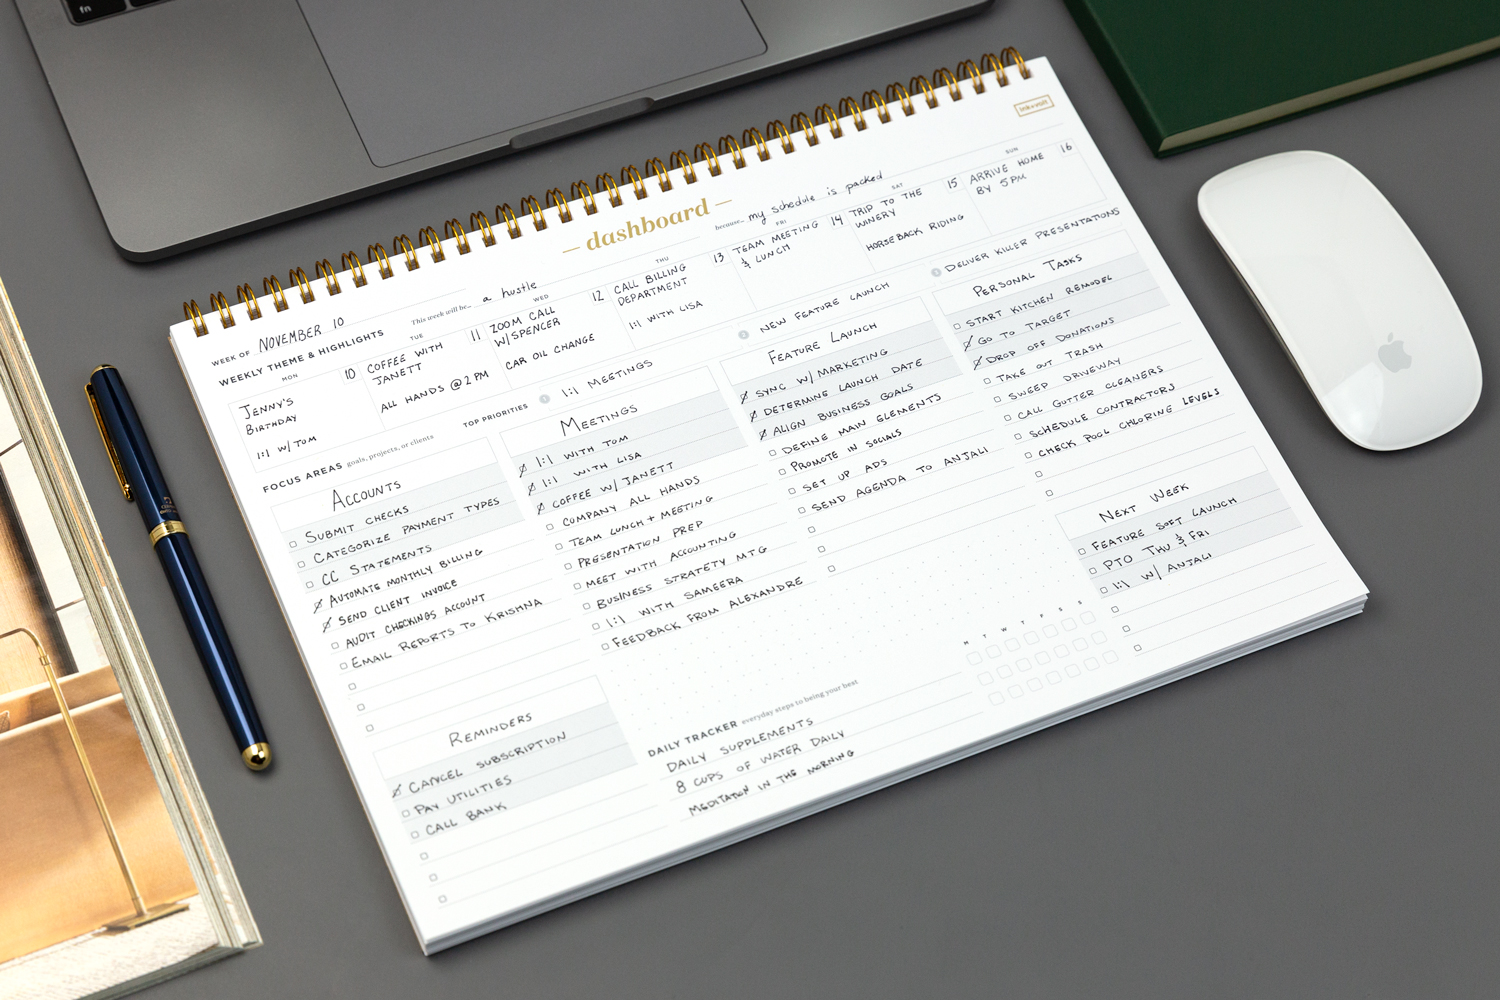 fn
ink+volt
— dashboard —
WEEK OF NOVEMBER 10
This week will be... a hustle
because... my schedule is packed
WEEKLY THEME & HIGHLIGHTS
MON 10
JENNY'S
BIRTHDAY
1:1 W/ TOM
TUE 11
COFFEE WITH
JANETT
ALL HANDS @ 2 PM
WED 12
ZOOM CALL
W/ SPENCER
CAR OIL CHANGE
THU 13
CALL BILLING
DEPARTMENT
1:1 WITH LISA
FRI 14
TEAM MEETING
& LUNCH
SAT 15
TRIP TO THE
WINERY
HORSEBACK RIDING
SUN 16
ARRIVE HOME
BY 5PM
TOP PRIORITIES
1 1:1 MEETINGS
2 NEW FEATURE LAUNCH
3 DELIVER KILLER PRESENTATIONS
FOCUS AREAS goals, projects, or clients
ACCOUNTS
SUBMIT CHECKS
CATEGORIZE PAYMENT TYPES
CC STATEMENTS
AUTOMATE MONTHLY BILLING
SEND CLIENT INVOICE
AUDIT CHECKINGS ACCOUNT
EMAIL REPORTS TO KRISHNA
MEETINGS
1:1 WITH TOM
1:1 WITH LISA
COFFEE W/ JANETT
COMPANY ALL HANDS
TEAM LUNCH + MEETING
PRESENTATION PREP
MEET WITH ACCOUNTING
BUSINESS STRATETY MTG
1:1 WITH SAMEERA
FEEDBACK FROM ALEXANDRE
FEATURE LAUNCH
SYNC W/ MARKETING
DETERMINE LAUNCH DATE
ALIGN BUSINESS GOALS
DEFINE MAIN ELEMENTS
PROMOTE IN SOCIALS
SET UP ADS
SEND AGENDA TO ANJALI
PERSONAL TASKS
START KITCHEN REMODEL
GO TO TARGET
DROP OFF DONATIONS
TAKE OUT TRASH
SWEEP DRIVEWAY
CALL GUTTER CLEANERS
SCHEDULE CONTRACTORS
CHECK POOL CHLORING LEVELS
REMINDERS
CANCEL SUBSCRIPTION
PAY UTILITIES
CALL BANK
DAILY TRACKER everyday steps to being your best
M T W T F S S
DAILY SUPPLEMENTS
8 CUPS OF WATER DAILY
MEDITATION IN THE MORNING
NEXT WEEK
FEATURE SOFT LAUNCH
PTO THU & FRI
1:1 W/ ANJALI